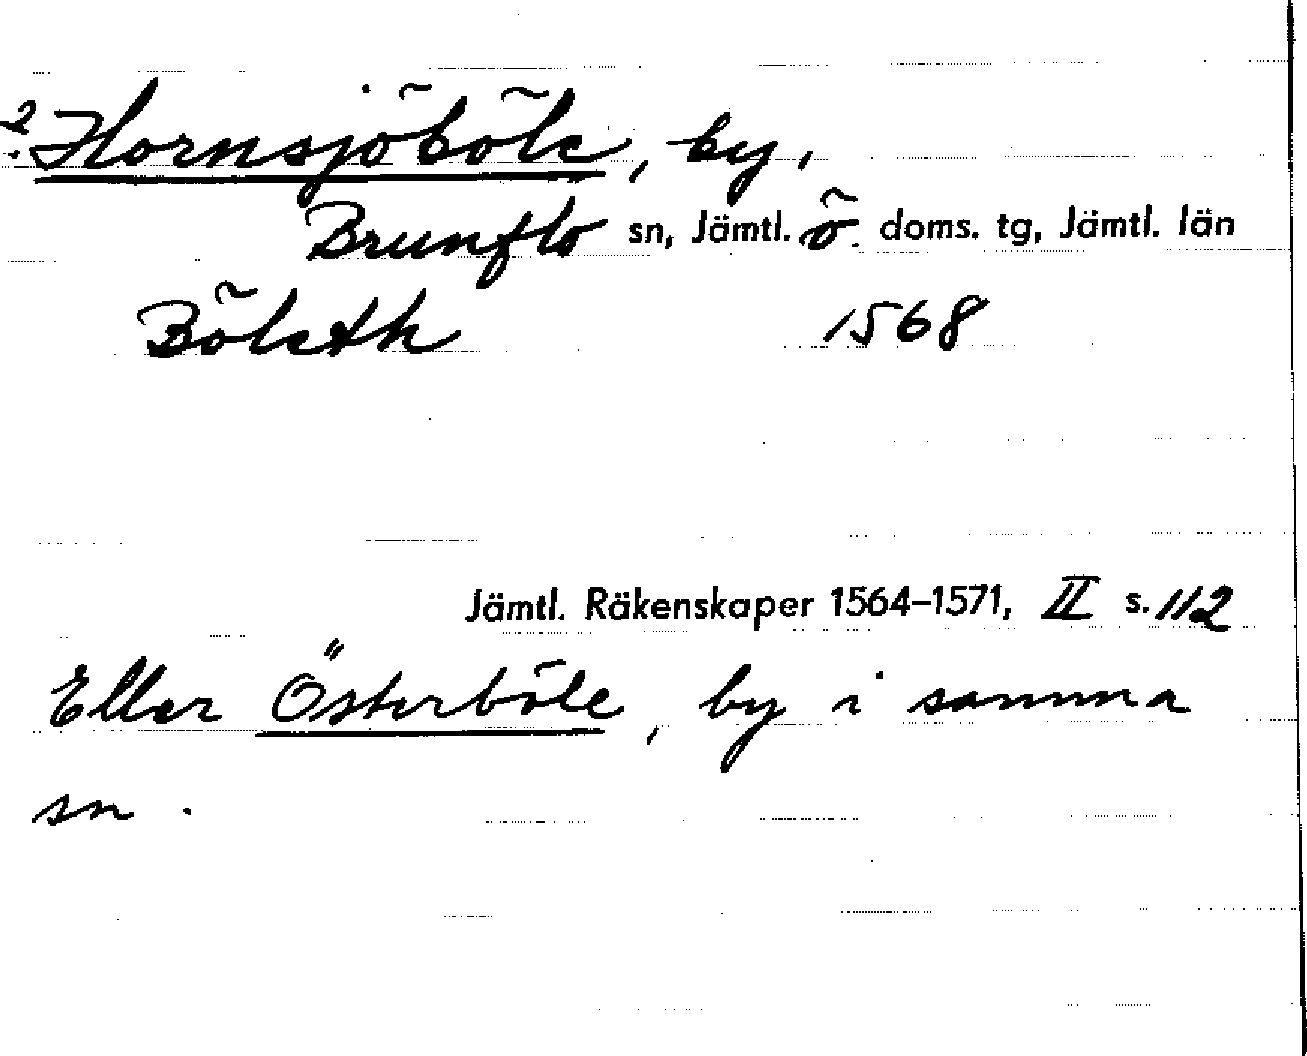 ? Hornsjöböle, by,
Brunflo sn, Jämtl. ö. doms. tg, Jämtl. län
Böleth 1568
Jämtl. Räkenskaper 1564-1571, II s. 112
Eller Österböle, by i samma
sn.